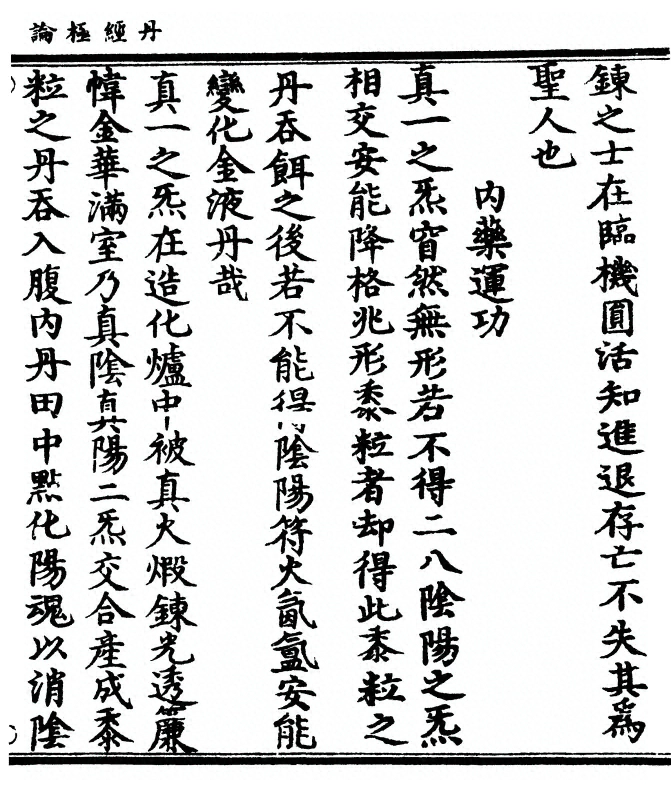 丹經極論
鍊之士在臨機圓活知進退存亡不失其爲
聖人也
內藥運功
真一之炁窅然無形若不得二八陰陽之炁
相交安能降格兆形黍粒者却得此黍粒之
丹吞餌之後若不能得陰陽符火氤氳安能
變化金液丹哉
真一之炁在造化爐中被真火煆鍊光透簾
幃金華滿室乃真陰真陽二炁交合產成黍
粒之丹吞入腹內丹田中點化陽魂以消陰